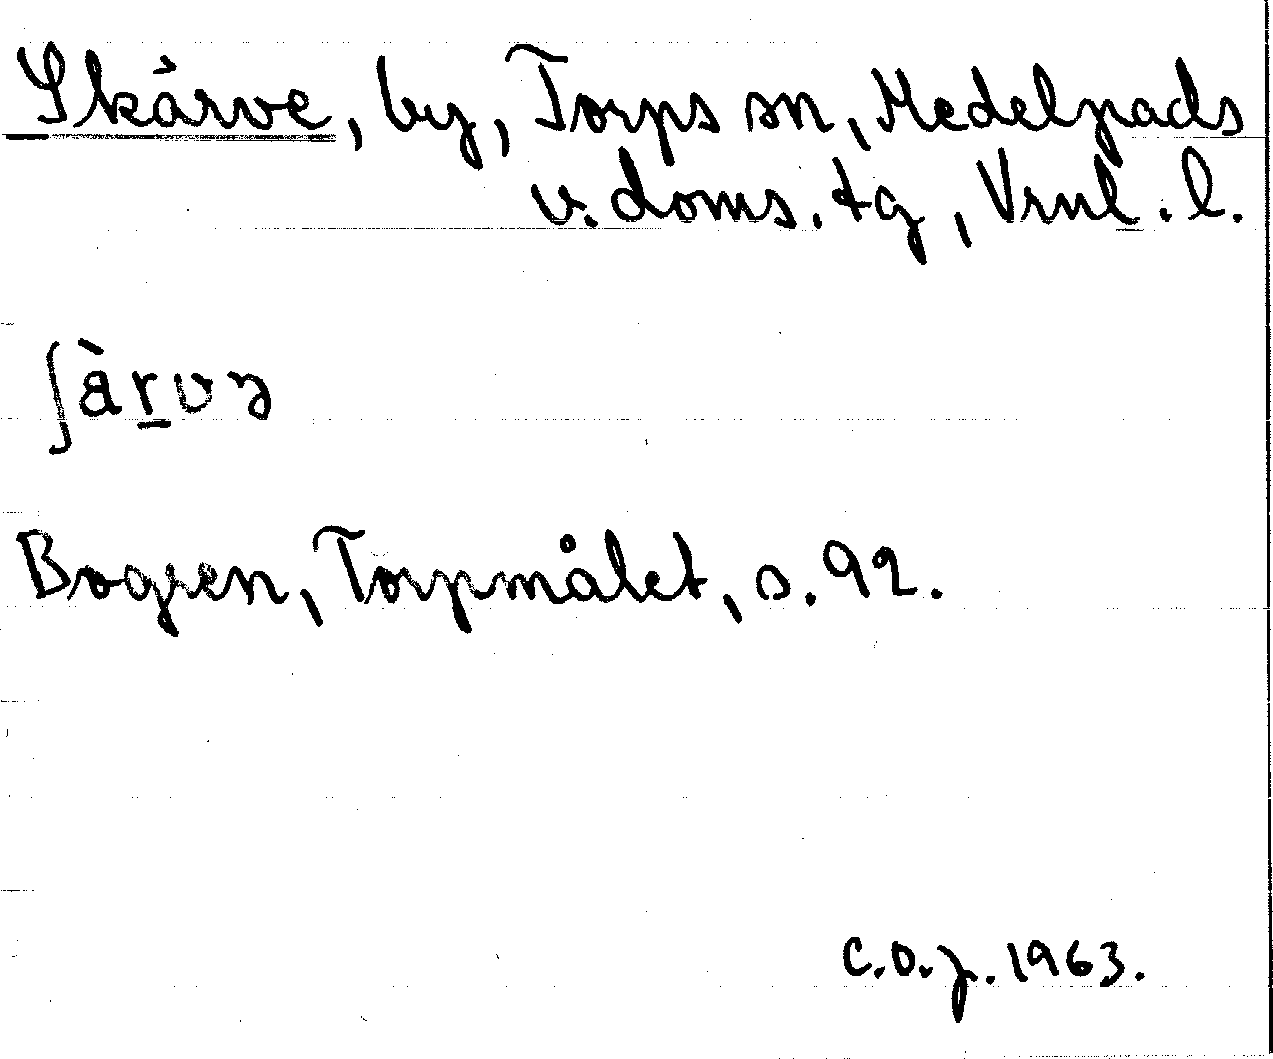 Skärve, by, Torps sn, Medelpads
v. doms. tg, Vrnl. l.
ʃàrvə
Bogren, Torpmålet, s. 92.
C.O.J. 1963.